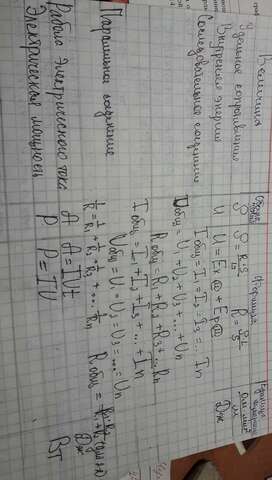 Величина Обозн. Формула Единица измерения
Удельное сопротивление ρ ρ = R·S/L R = ρL/S Ом·мм²/м
Внутренняя энергия U U = Eк + Eр Дж
Последовательное соединение Iобщ = I1 = I2 = I3 = ... In
Uобщ = U1 + U2 + U3 + ... + Un
Rобщ = R1 + R2 + R3 + ... Rn
Параллельное соединение Iобщ = I1 + I2 + I3 + ... + In
Uобщ = U1 = U2 = U3 = ... = Un
1/R = 1/R1 + 1/R2 + 1/R3 + ... 1/Rn Rобщ = R1·R2/R1+R2 (для 2)
Работа электрического тока A A = IUt Дж
Электрическая мощность P P = IU Вт